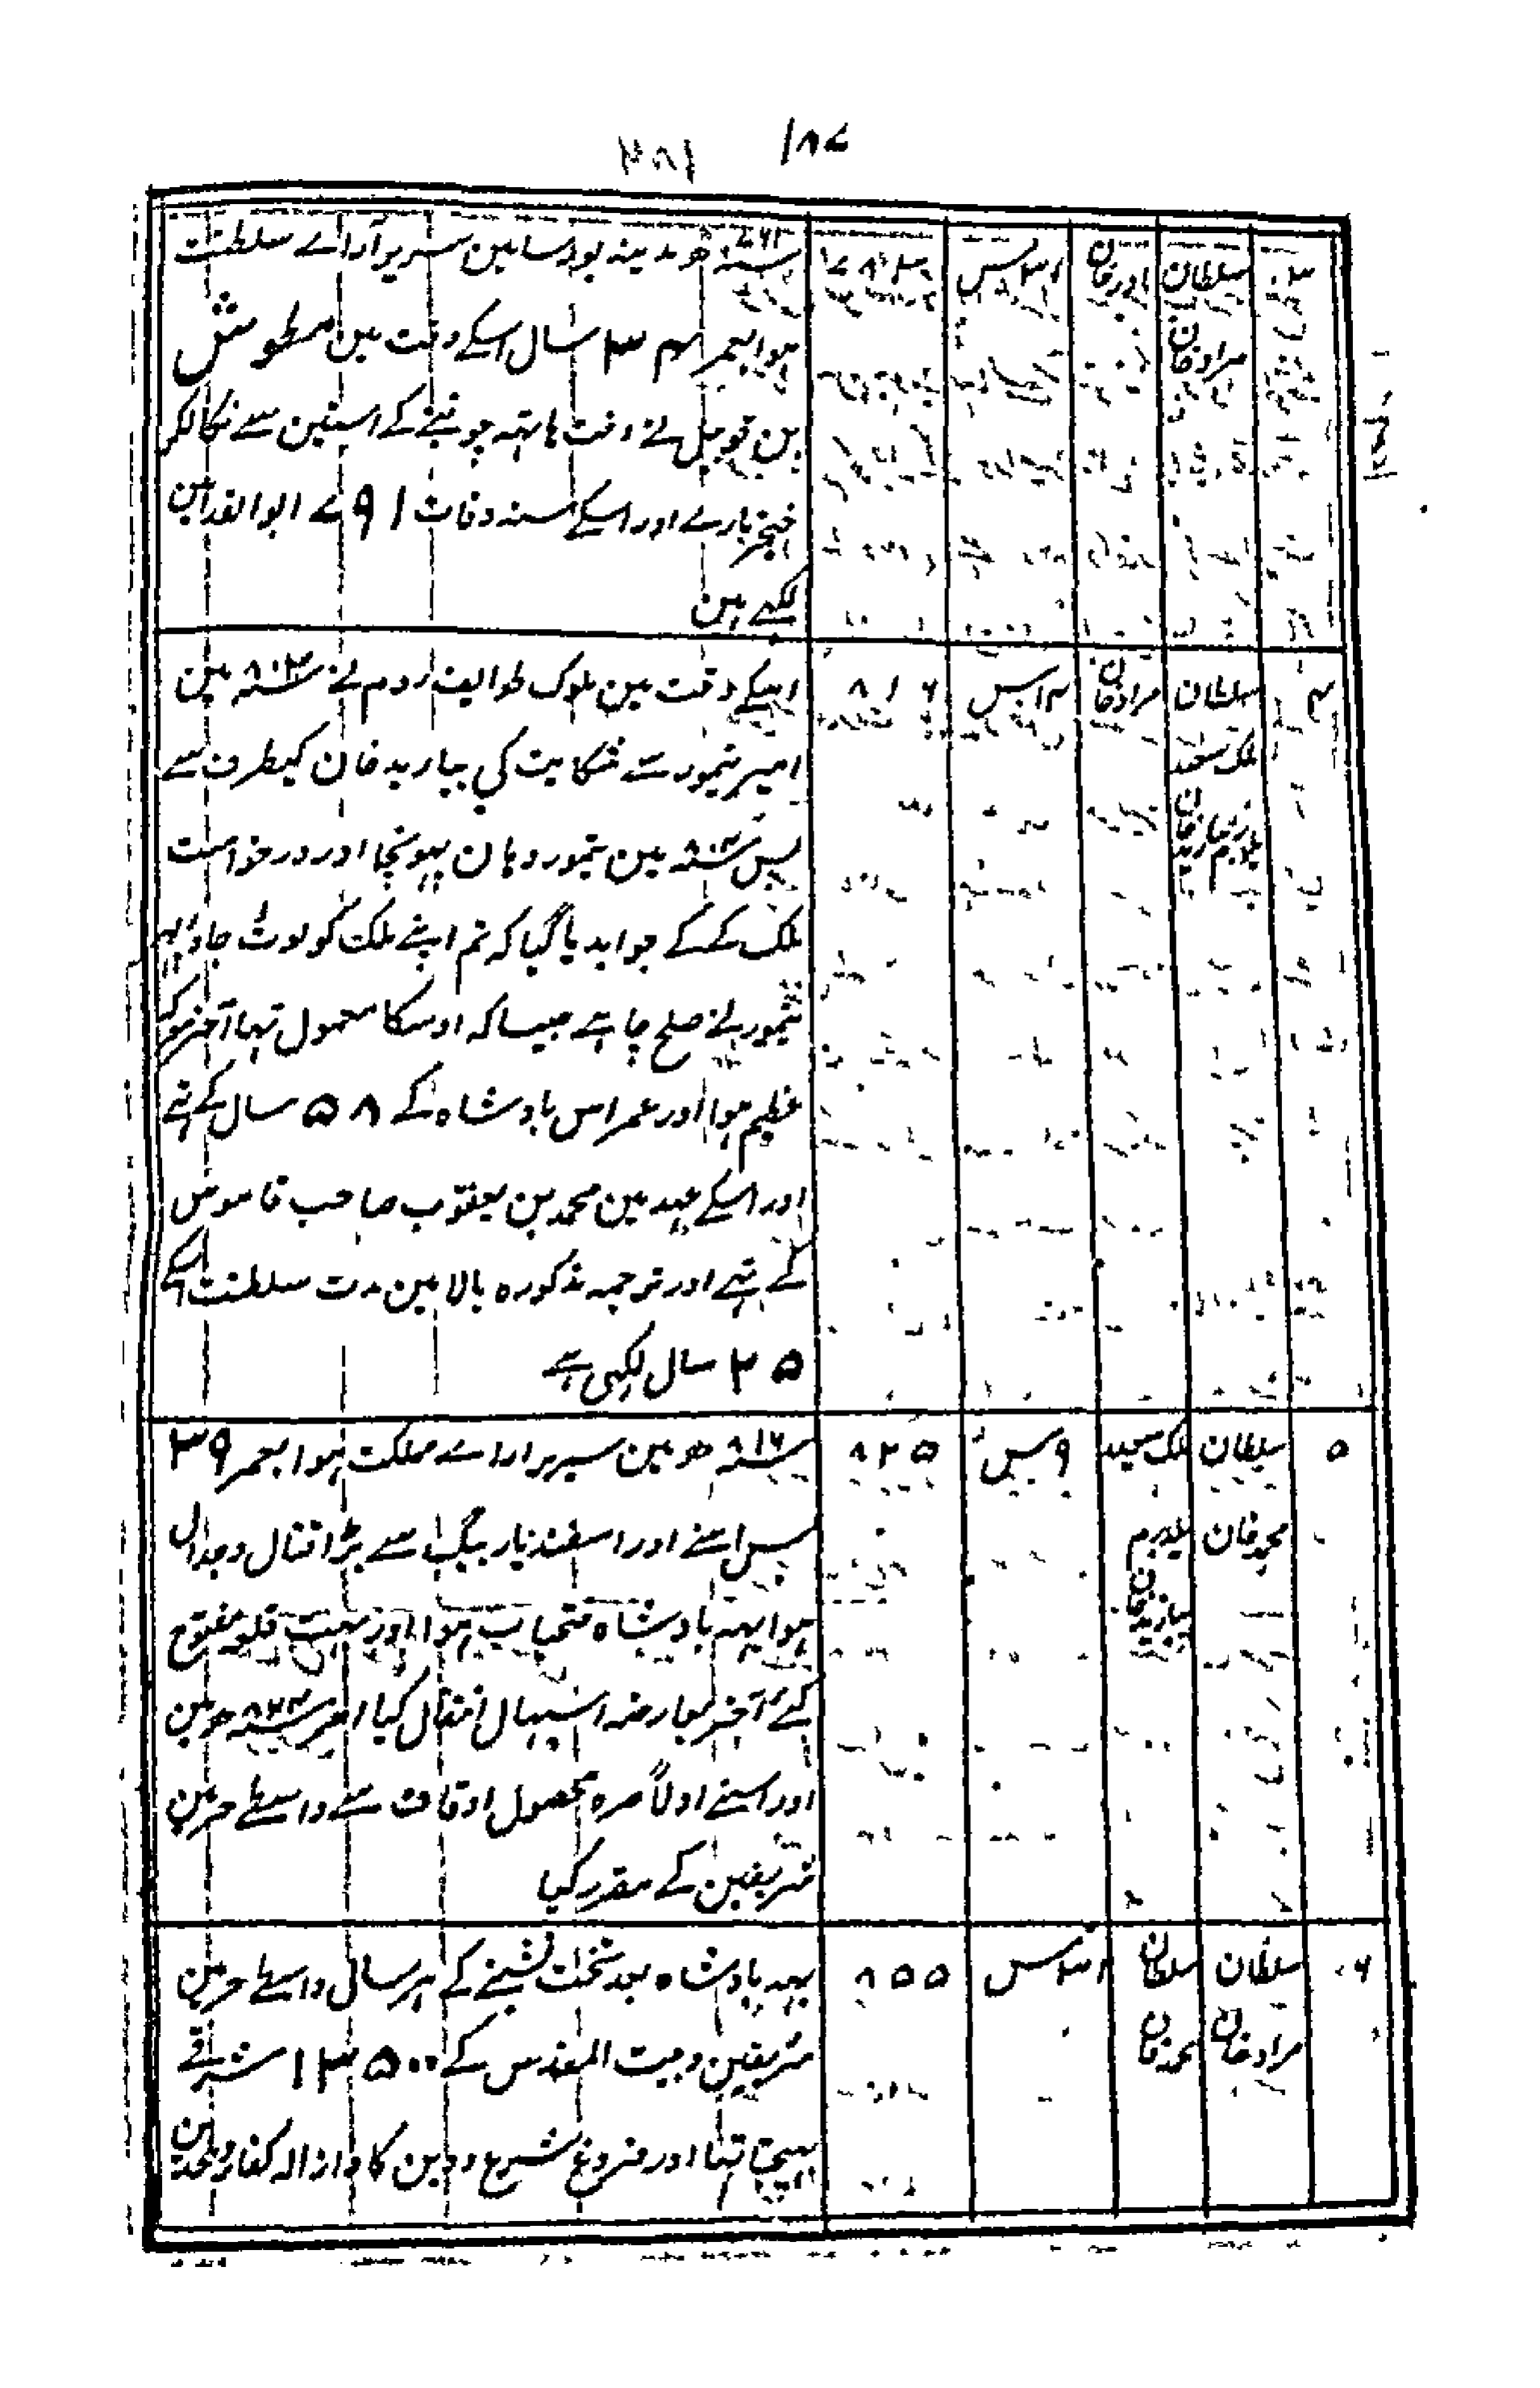 ۱۸۷
۳
سلطان مراد خان
اورخان
۳۱ برس
۷۹۳
سنہ ۷۶۱ھ مدینہ بورسا مین سریر آراے سلطنت
ہوا بعمر ۳۴ سال اسکے وقت مین
بن نے وقت ہاتہہ چومنے کے استین سے نکالکر
خنجر مارے اور اسکے سنہ وفات ۷۹۱ ابو الفدا مین
لکہے ہین
۴
سلطان ملک سعید یلدرم بیازید خان
مراد خان
۱۴ برس
۸۱۶
اسکے وقت مین ملوک طوایف روم نے سنہ ۸۰۲ھ مین
امیر تیمور سے شکایت کی بیازید خان کیطرف سے
پس سنہ ۸۰۴ھ مین تیمور وہان پہونچا اور درخواست
ملک کے کے جواب دیا گیا کہ تم اپنے ملک کو لوٹ جاو پہر
تیمور نے صلح چاہے جیسا کہ اوسکا معمول تہا آخر معرکہ
عظیم ہوا اور عمر اس بادشاہ کے ۵۸ سال کے تہے
اور اسکے عہد مین محمد بن یعقوب صاحب قاموس
کے تہے اور ترجمہ مذکورہ بالا مین مدت سلطنت اسکے
۲۵ سال لکہی ہے
۵
سلطان محمد خان
ملک سعید یلدرم بیازید خان
۹ برس
۸۲۵
سنہ ۸۱۶ھ مین سریر اراے مملکت ہوا بعمر ۳۹
پس اسنے اور اسفند یار بیگ سے بڑا قتال و جدال
ہوا یہہ بادشاہ فتحیاب ہوا اور بہت قلعہ مفتوح
کئے آخر بعارضہ اسہال انتقال کیا سنہ ۸۲۴ھ مین
اور اسنے اولاً صرہ محصول اوقاف سے واسطے حرمین
شریفین کے مقرر کیا
۶
سلطان مراد خان
سلطان محمد خان
۳۱ برس
۸۵۵
یہہ بادشاہ بعد تخت نشینے کے ہر سال واسطے حرمین
شریفین و بیت المقدس کے ۱۳۵۰۰ شرفے
بہیجتا تہا اور فروغ شرع و دین کا و ازالہ کفار و ملحدین